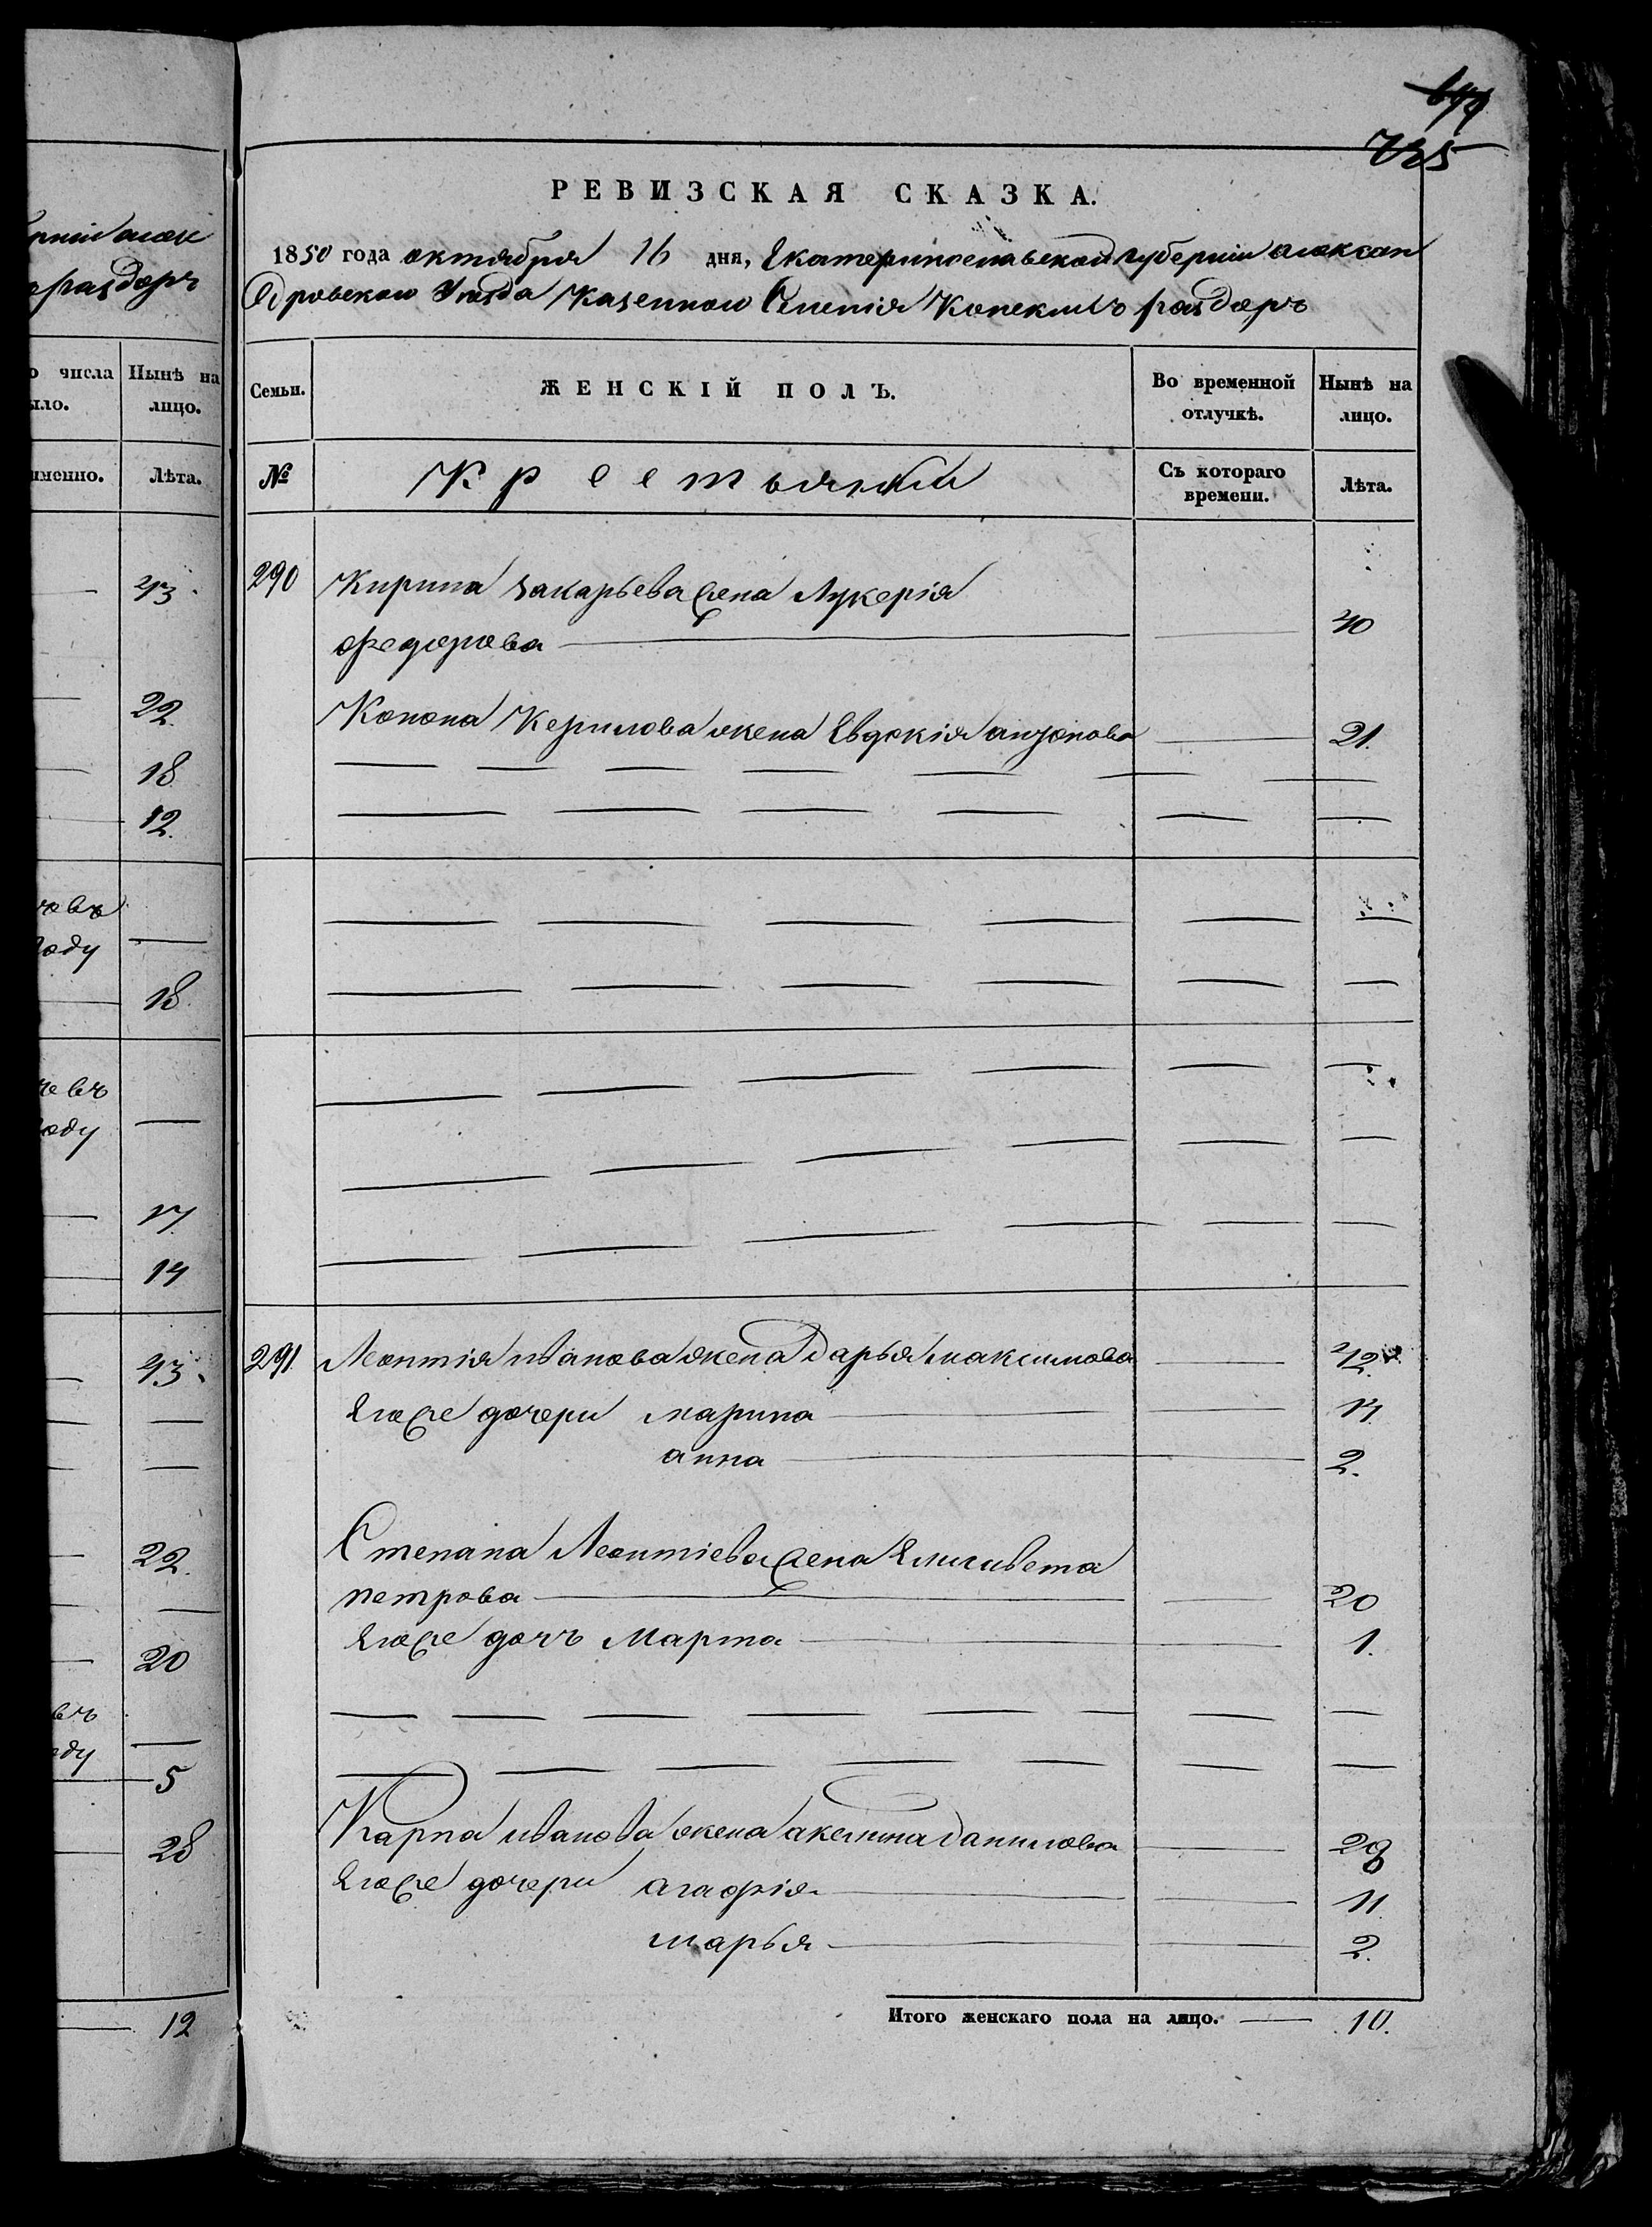 699
735
РЕВИЗСКАЯ СКАЗКА.
1850 года октября 16 дня, Екатеринославской губернии алексан
дровского Уезда Казенного Селения Конских раздор
Семьи. ЖЕНСКІЙ ПОЛЪ. Во временной отлучкѣ. Нынѣ на лицо.
№ Крестьянки Съ котораго времени. Лѣта.
290 Кирила захарьева жена Лукерія
федорова 40
Конона Керилова жена Евдокія антонова 21.
291. Леонтія иванова жена дарья максимова 42.
Егоже дочери марина 14
анна 2.
Степана Леонтіева жена Елисивета
петрова 20
Егоже дочь Марта 1.
Карпа иванова жена акелина данилова 29
Егоже дочери агафія 11
марья 2.
Итого женскаго пола на лицо. 10.
раздоръ
числа Нынѣ на
лицо.
именно. Лѣта.
43
22.
18
12.
году
18.
году
17
14
43.
22.
20
5
28
12